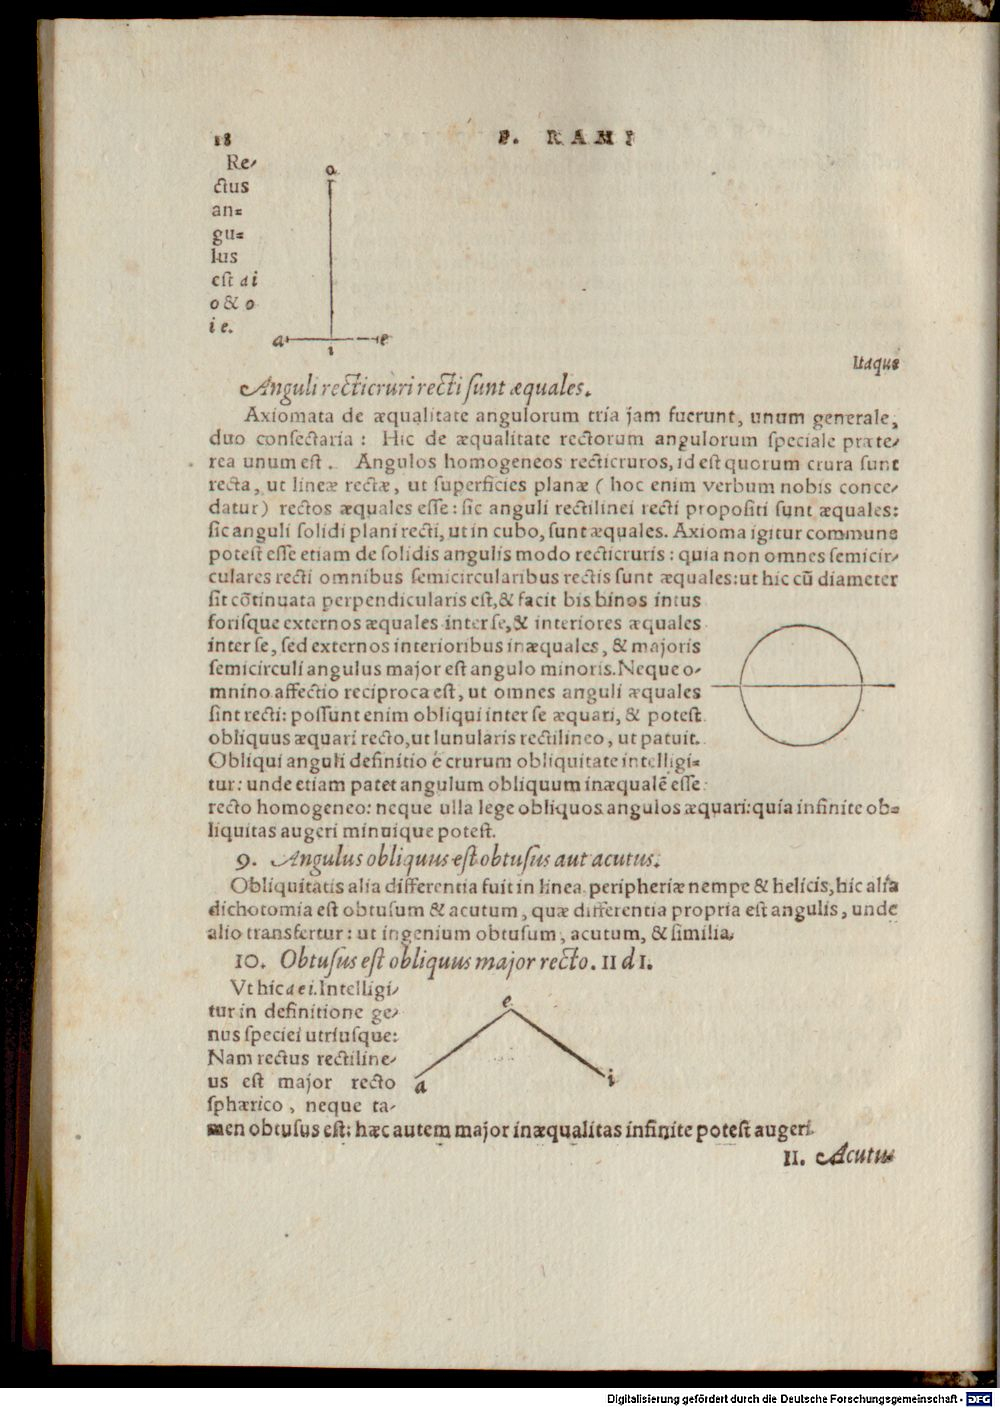 18
P. RAMI
Re-
ctus
an-
gu-
lus
est a i
o & o
i e.
o
a
e
i
Itaque
Anguli recticruri recti sunt æquales.
Axiomata de æqualitate angulorum tria jam fuerunt, unum generale,
duo consectaria: Hic de æqualitate rectorum angulorum speciale præte-
rea unum est. Angulos homogeneos recticruros, id est quorum crura sunt
recta, ut lineæ rectæ, ut superficies planæ (hoc enim verbum nobis conce-
datur) rectos æquales esse: sic anguli rectilinei recti propositi sunt æquales:
sic anguli solidi plani recti, ut in cubo, sunt æquales. Axioma igitur commune
potest esse etiam de solidis angulis modo recticruris: quia non omnes semicir-
culares recti omnibus semicircularibus rectis sunt æquales: ut hic cũ diameter
sit cõtinuata perpendicularis est, & facit bis binos intus
forisque externos æquales inter se, & interiores æquales
inter se, sed externos interioribus inæquales, & majoris
semicirculi angulus major est angulo minoris. Neque o-
mnino affectio reciproca est, ut omnes anguli æquales
sint recti: possunt enim obliqui inter se æquari, & potest
obliquus æquari recto, ut lunularis rectilineo, ut patuit.
Obliqui anguli definitio è crurum obliquitate intelligi-
tur: unde etiam patet angulum obliquum inæqualẽ esse
recto homogeneo: neque ulla lege obliquos angulos æquari: quia infinite ob-
liquitas augeri minuique potest.
9. Angulus obliquus est obtusus aut acutus.
Obliquitatis alia differentia fuit in linea peripheriæ nempe & helicis, hic alia
dichotomia est obtusum & acutum, quæ differentia propria est angulis, unde
alio transfertur: ut ingenium obtusum, acutum, & similia.
10. Obtusus est obliquus major recto. 11 d 1.
Vt hic a e i. Intelligi-
tur in definitione ge-
nus speciei utriusque:
Nam rectus rectiline-
us est major recto
sphærico, neque ta-
men obtusus est: hæc autem major inæqualitas infinite potest augeri.
e
a
i
11. Acutus
Digitalisierung gefördert durch die Deutsche Forschungsgemeinschaft - DFG